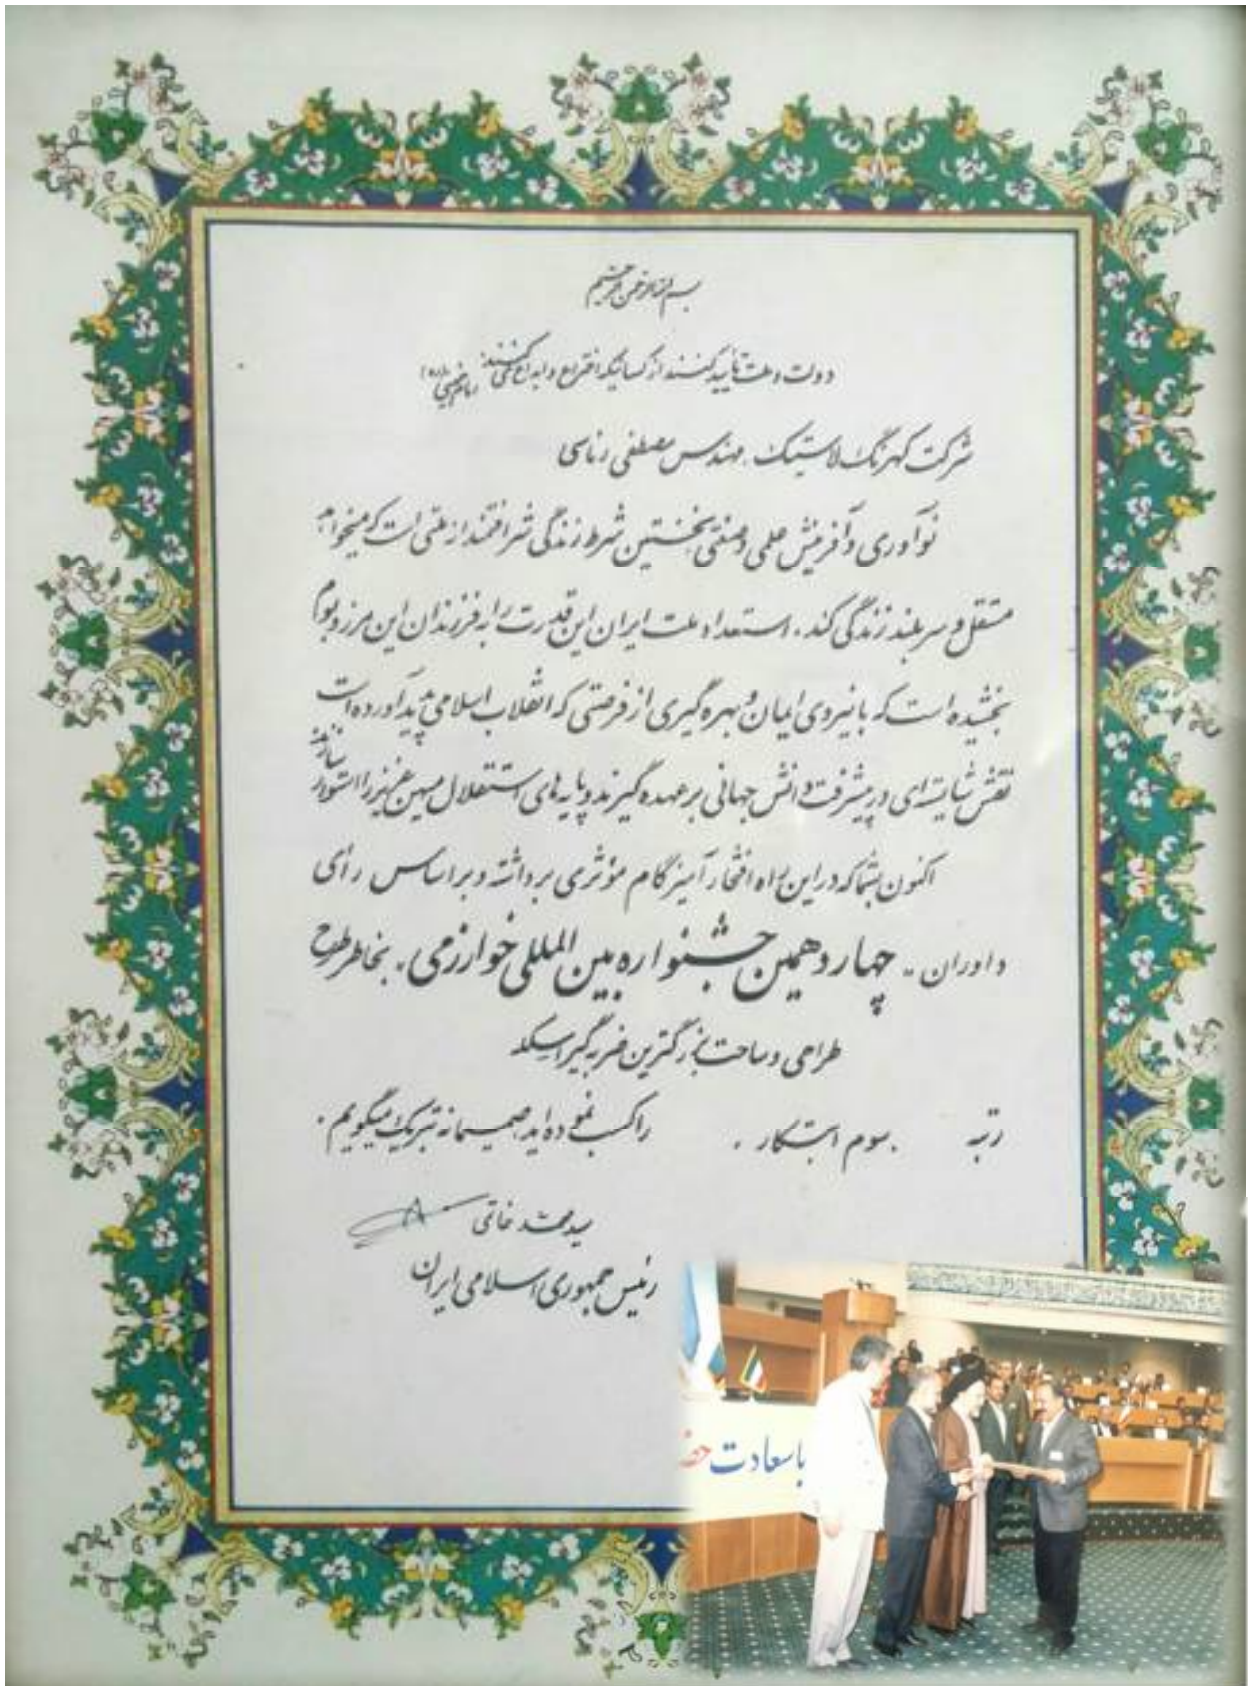 بسم الله الرحمن الرحیم
دولت و ملت تأیید کنند از کسانیکه اختراع و ابداع می کنند. امام خمینی (ره)
شرکت کهرنگ لاستیک . مهندس مصطفی رناسی
نوآوری و آفرینش علمی و صنعتی نخستین شرط زندگی شرافتمند از ملتی است که میخواهد
مستقل و سربلند زندگی کند . استعداد ملت ایران این قدرت را به فرزندان این مرز و بوم
بخشیده است که با نیروی ایمان و بهره گیری از فرصتی که انقلاب اسلامی پدید آورده است
نقش شایسته ای در پیشرفت دانش جهانی بر عهده گیرند و پایه های استقلال میهن عزیز را استوار سازند
اکنون بشما که در این راه افتخار آمیز گام مؤثری برداشته و بر اساس رأی
داوران " چهاردهمین جشنواره بین المللی خوارزمی " بخاطر طرح
طراحی و ساخت بزرگترین ضربه گیر اسکله
رتبه سوم ابتکار . را کسب نموده اید صمیمانه تبریک میگویم .
سید محمد خاتمی
رئیس جمهوری اسلامی ایران
باسعادت